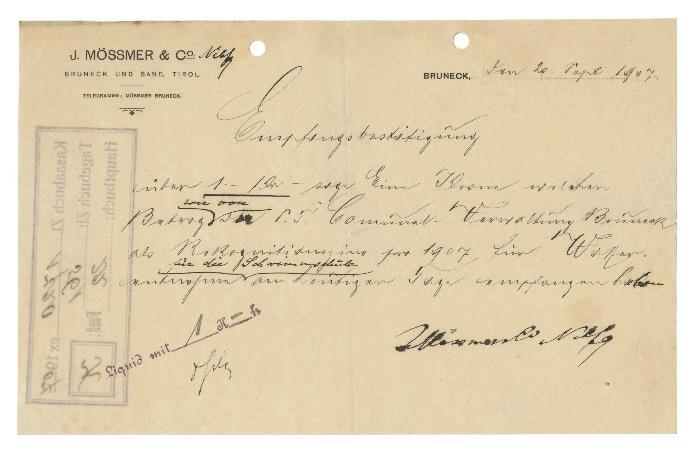 J. MÖSSMER & Co. Nchfg
BRUNECK UND SAND, TIROL
TELEGRAMME: MÖSSMER BRUNECK.
BRUNECK, den 20. Sept. 1907.
Empfangsbestätigung
über 1.– Kr – sage Eine Krone welchen
wir von
Betrag P. T. Comunal-Verwaltung Bruneck
als Rekognitionszins pro 1907 für Wasser-
für die Schwimmschule
entnahme am heutigen Tage empfangen haben
Mössmer & Co Nchfg
Liquid mit 1 K – h
Hauptbuch:
Tagebuch Zl:
Fond:
Kassabuch Zl. ex 1907